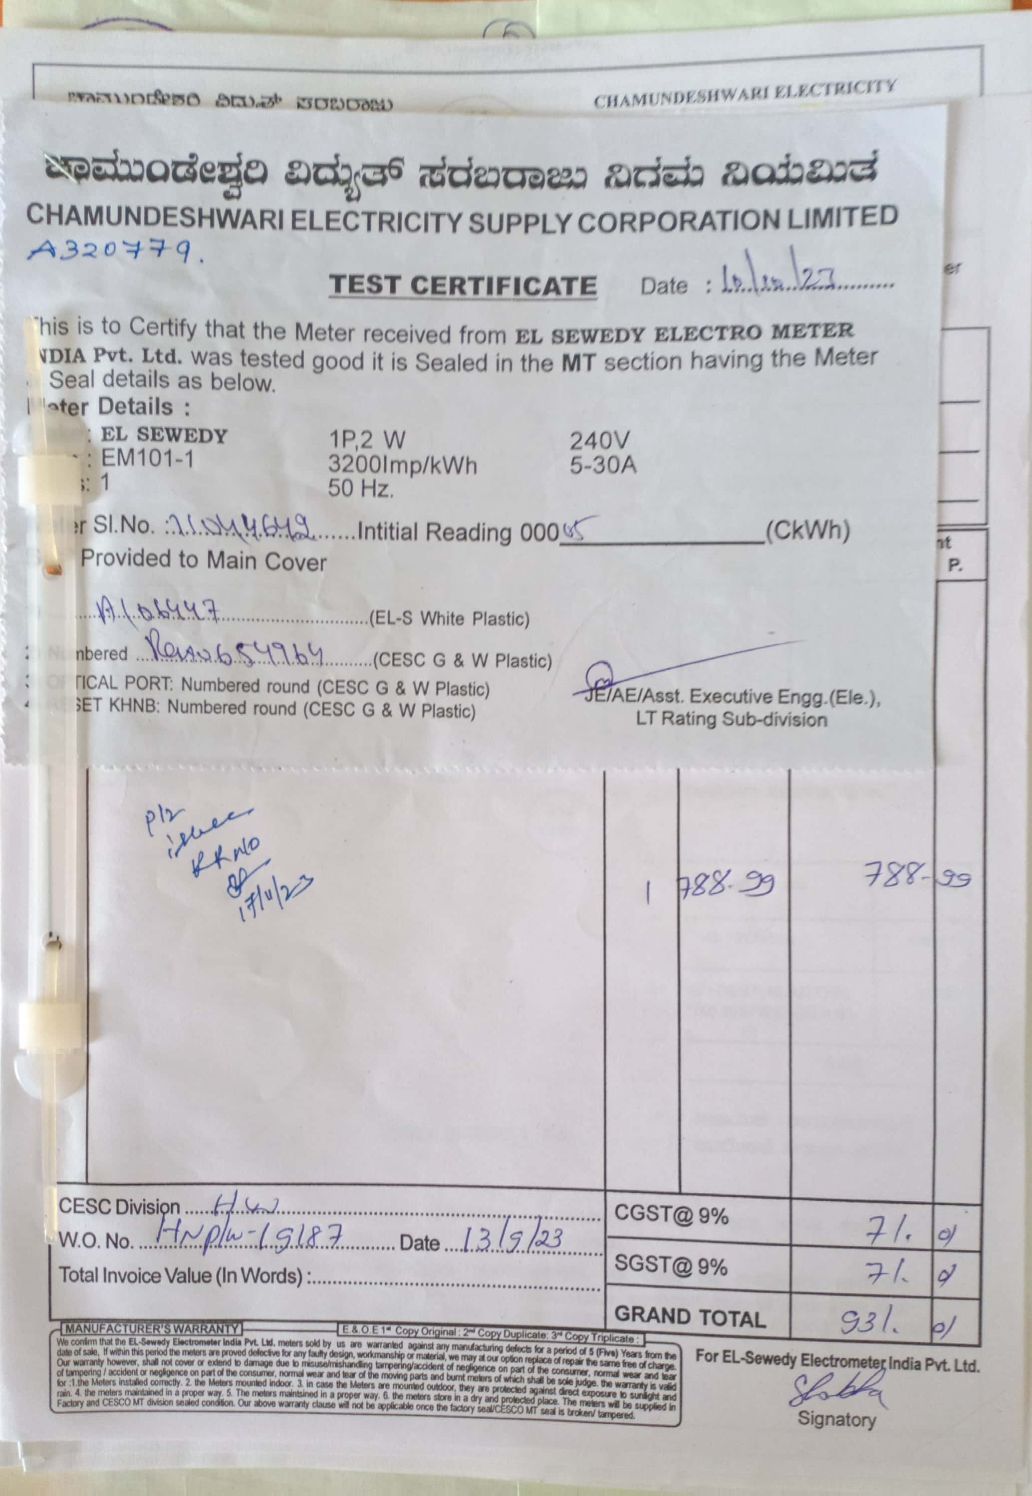 ಚಾಮುಂಡೇಶ್ವರಿ ವಿದ್ಯುತ್ ಸರಬರಾಜು
CHAMUNDESHWARI ELECTRICITY
ಚಾಮುಂಡೇಶ್ವರಿ ವಿದ್ಯುತ್ ಸರಬರಾಜು ನಿಗಮ ನಿಯಮಿತ
CHAMUNDESHWARI ELECTRICITY SUPPLY CORPORATION LIMITED
A320779.
TEST CERTIFICATE Date :
his is to Certify that the Meter received from EL SEWEDY ELECTRO METER
NDIA Pvt. Ltd. was tested good it is Sealed in the MT section having the Meter
Seal details as below.
eter Details :
: EL SEWEDY 1P,2 W 240V
: EM101-1 3200Imp/kWh 5-30A
s: 1 50 Hz.
er Sl.No. : Intitial Reading 000 05 (CkWh)
Provided to Main Cover
A106447 (EL-S White Plastic)
mbered 654964 (CESC G & W Plastic)
TICAL PORT: Numbered round (CESC G & W Plastic)
SET KHNB: Numbered round (CESC G & W Plastic)
JE/AE/Asst. Executive Engg.(Ele.),
LT Rating Sub-division
er
nt
P.
RR NO
17/11/23
1 788-99 788-99
CESC Division
W.O. No. Date 13/9/23
Total Invoice Value (In Words) :
CGST@ 9% 71.
SGST@ 9% 71.
GRAND TOTAL 931.
MANUFACTURER'S WARRANTY E.& O.E 1st Copy Original : 2nd Copy Duplicate: 3rd Copy Triplicate :
We confirm that the EL-Sewedy Electrometer India Pvt. Ltd, meters sold by us are warranted against any manufacturing defects for a period of 5 (Five) Years from the
date of sale, If within this period the meters are proved defective for any faulty design, workmanship or material, we may at our option replace of repair the same free of charge.
Our warranty however, shall not cover or extend to damage due to misuse/mishandling tampering/accident of negligence on part of the consumer, normal wear and tear
of tampering / accident or negligence on part of the consumer, normal wear and tear of the moving parts and burnt meters of which shall be sole judge. the warranty is valid
for :1.the Meters installed correctly. 2. the Meters mounted indoor. 3. in case the Meters are mounted outdoor, they are protected against direct exposure to sunlight and
rain. 4. the meters maintained in a proper way. 5. The meters maintained in a proper way. 6. the meters store in a dry and protected place. The meters will be supplied in
Factory and CESCO MT division sealed condition. Our above warranty clause will not be applicable once the factory seal/CESCO MT seal is broken/ tampered.
For EL-Sewedy Electrometer India Pvt. Ltd.
Signatory